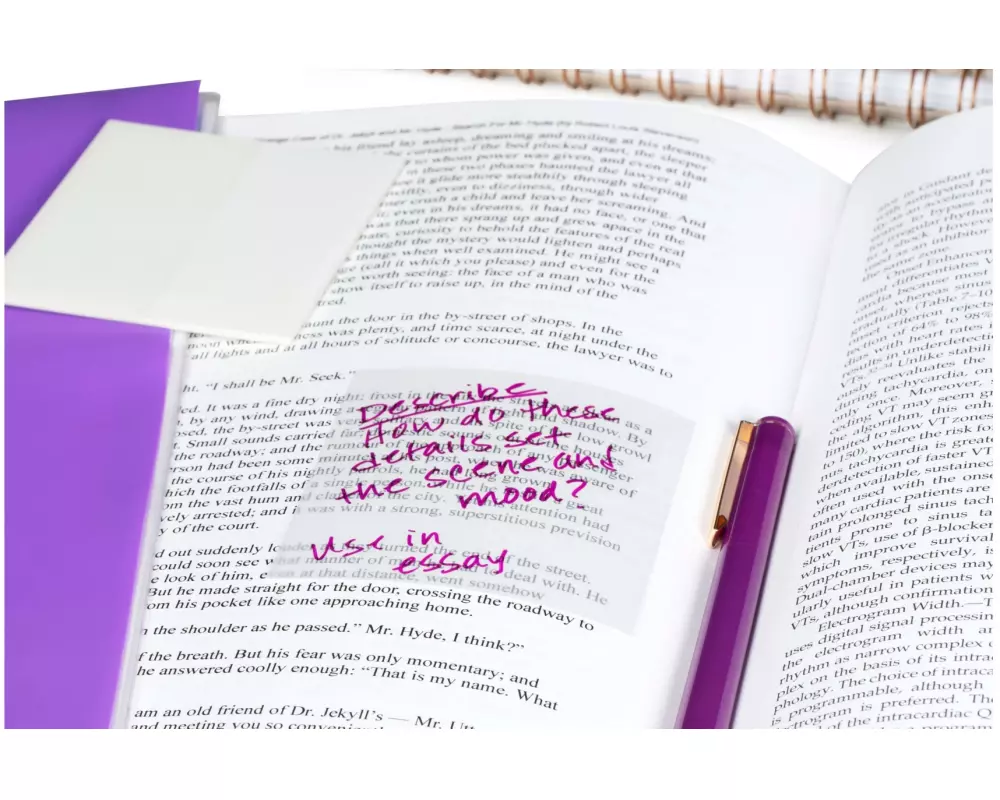 Case of Dr. Jekyll and Mr. Hyde
his friend lay asleep, dreaming and smiling at his dreams;
the curtains of the bed plucked apart, the sleeper
to whom power was given, and even at that
in these two phases haunted the lawyer all
it glide more stealthily through sleeping
swiftly, even to dizziness, through wider
corner crush a child and leave her screaming. And
it; even in his dreams, it had no face, or one that
was that there sprang up and grew apace in the
curiosity to behold the features of the real
thought the mystery would lighten and perhaps
things when well examined. He might see a
(call it which you please) and even for the
worth seeing: the face of a man who was
show itself to raise up, in the mind of the
aunt the door in the by-street of shops. In the
noon when ness was plenty, and time scarce, at night under the
all lights and at all hours of solitude or concourse, the lawyer was to
ht. "I shall be Mr. Seek."
ed. It was a fine dry night; frost in the
by any wind, drawing a
sed, the by-street was
Small sounds carried far; domestic sounds
the roadway; and the rumour of the approach of any
rson had been some minutes
the course of his nightly patrols, he had long grown
hich the footfalls of a single person, while he
vast hum and clatter of the city.
vely arrested; and it was with a strong, superstitious prevision
y of the court.
d out suddenly louder as they turned the end of the street.
could soon see what manner of man he had to deal with. He
e look of him, even at that distance, went somehow
But he made straight for the door, crossing the roadway to
om his pocket like one approaching home.
n the shoulder as he passed." Mr. Hyde, I think?"
f the breath. But his fear was only momentary; and
he answered coolly enough: "That is my name. What
am an old friend of Dr. Jekyll's — Mr. Utt
and meeting you so conveniently
Describe
How do these
details set
the scene and
mood?
Use in
essay
for a shock. However
as an inhibitor
the same zone.
Onset Enhancem
ment differentiates V
cardia because most
onset, whereas sinus
gradually (Table 7–10
onset criterion rejects
tection of 64% to 98%
dias with heart rates i
results in underdetectio
VTs. Unlike stabili
ously reevaluates the
during tachycardia, on
only once. Moreover, s
coding VT may seem gr
the algorithm, this enh
limited to slow VT zones
to 150), where the risk for
us tachycardia is greate
derdetection of faster VT
when available, sustained
often used with the onse
many cardiac patients are
tain prolonged sinus tach
tients prone to sinus ta
slow VTs, use of β-blocker
which improve survival
symptoms, respectively, is
Dual-chamber devices may
ularly useful in patients w
VTs, although confirmation
Electrogram Width.—T
uses digital signal processing
the electrogram width a
rhythm as narrow complex o
plex on the basis of its intraca
phology. The choice of intraca
is programmable, although
program is preferred. The
of the intracardiac Q